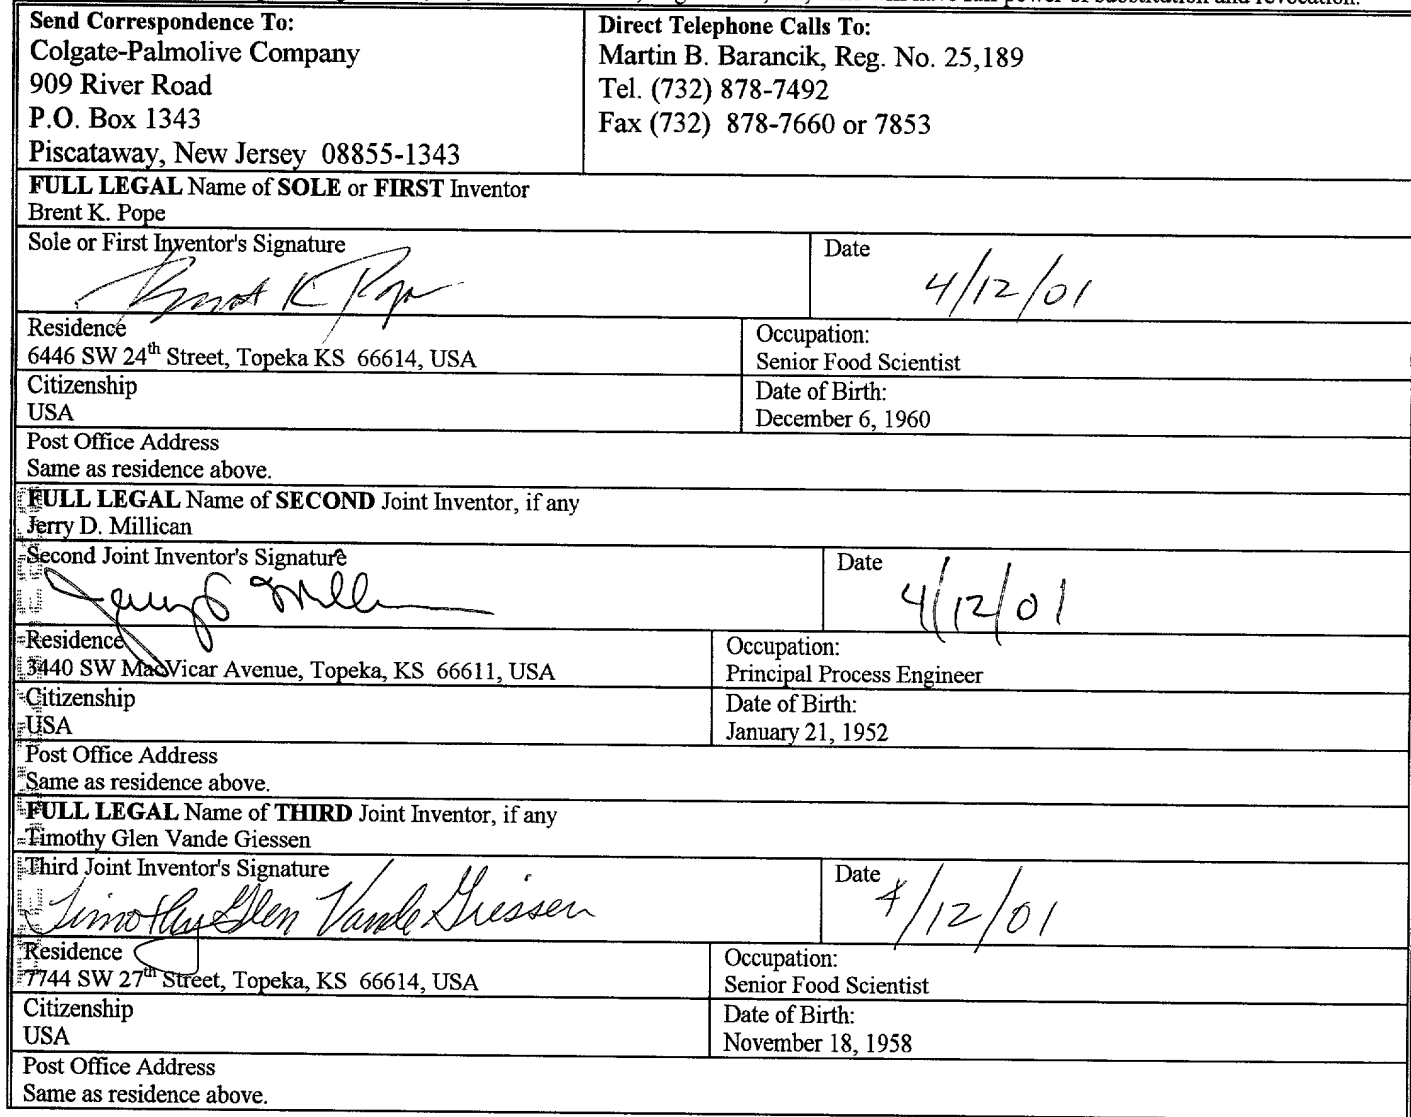 have full power of substitution and revocation.
Send Correspondence To:
Colgate-Palmolive Company
909 River Road
P.O. Box 1343
Piscataway, New Jersey 08855-1343
Direct Telephone Calls To:
Martin B. Barancik, Reg. No. 25,189
Tel. (732) 878-7492
Fax (732) 878-7660 or 7853
FULL LEGAL Name of SOLE or FIRST Inventor
Brent K. Pope
Sole or First Inventor's Signature
Brent K Pope
Date
4/12/01
Residence
6446 SW 24th Street, Topeka KS 66614, USA
Occupation:
Senior Food Scientist
Citizenship
USA
Date of Birth:
December 6, 1960
Post Office Address
Same as residence above.
FULL LEGAL Name of SECOND Joint Inventor, if any
Jerry D. Millican
Second Joint Inventor's Signature
Date
4/12/01
Residence
3440 SW MacVicar Avenue, Topeka, KS 66611, USA
Occupation:
Principal Process Engineer
Citizenship
USA
Date of Birth:
January 21, 1952
Post Office Address
Same as residence above.
FULL LEGAL Name of THIRD Joint Inventor, if any
Timothy Glen Vande Giessen
Third Joint Inventor's Signature
Timothy Glen Vande Giessen
Date
4/12/01
Residence
7744 SW 27th Street, Topeka, KS 66614, USA
Occupation:
Senior Food Scientist
Citizenship
USA
Date of Birth:
November 18, 1958
Post Office Address
Same as residence above.